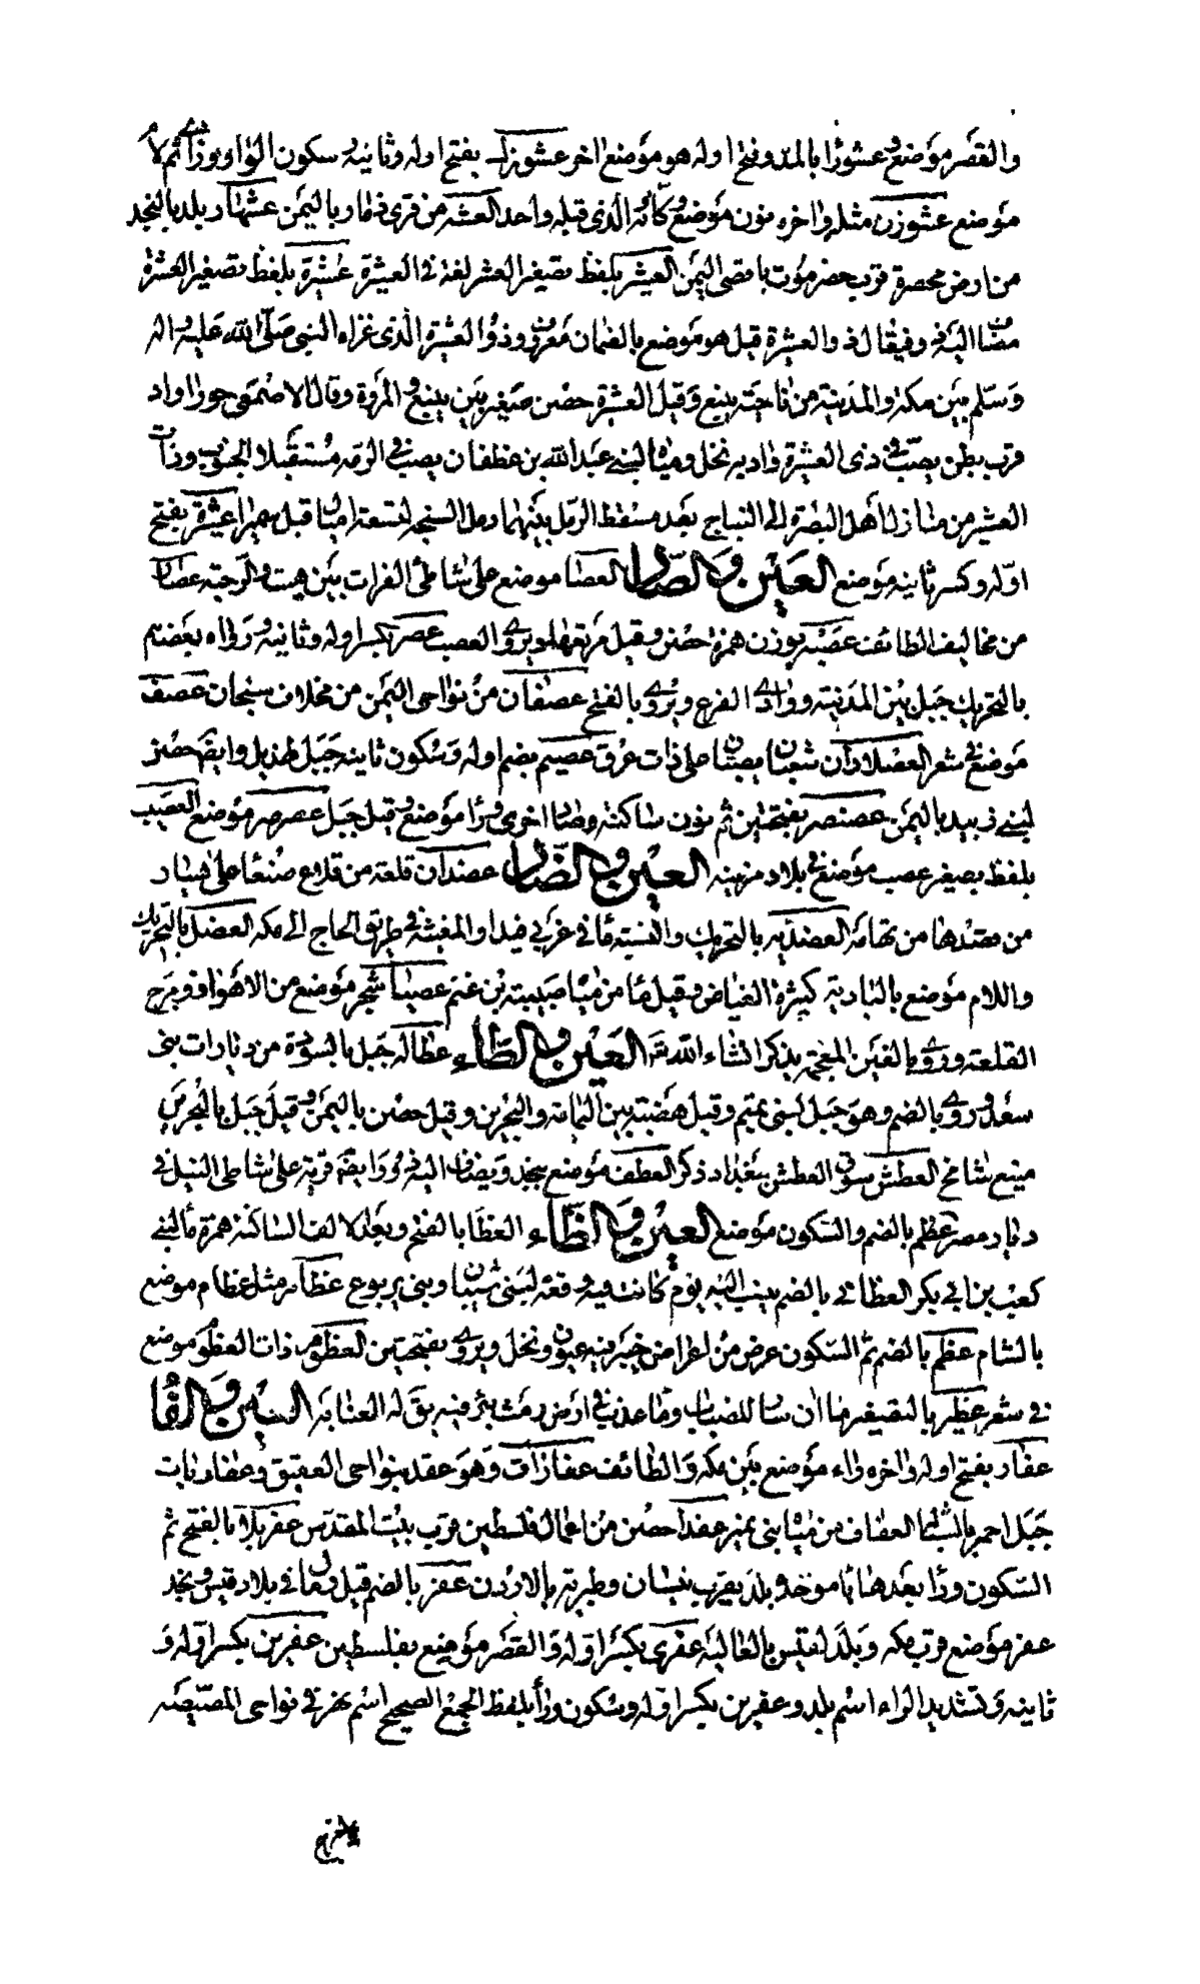 والقصر موضع عشورا بالمد وفتح اوله هو موضع اخر عشوزل بفتح اوله وثانيه وسكون الواو وزاي ثم لام
موضع عشوزن مثله واخره نون موضع كانه الذي قبله واحد العشه من قرى ذمار باليمن عشهار بلد بالنجد
من ارض مهرة قرب حضرموت باقصى اليمن العشير بلفظ تصغير العشر لغة في العشيرة عشيرة بلفظ تصغير العشرة
مضاف اليه ذو فيقال ذو العشيرة قيل هو موضع بالصمان معروف وذو العشيرة الذي غزاه النبي صلى الله عليه واله
وسلم بين مكة والمدينة من ناحية ينبع وقيل العشيرة حصن صغير بين ينبع والمروة وقال الاصمعي حوزا واد
قرب بطن يصب في ذي العشيرة واد به نخل ومياه لبني عبد الله بن غطفان يصب في الرمه مستقبلا الجنوب وذات
العشير من منازل اهل البصرة الى النباج بعد مسقط الرمل بينهما رمل الشيحه تسعة اميال قبل سميرا عشيرة بفتح
اوله وكسر ثانيه موضع العين والصاد العصا موضع على شاطئ الفرات بين هيت والرحبة عصار
من مخاليف الطائف عصبه بوزن همزة حصن وقيل ويروى العصب عصر بكسر اوله وثانيه ورواه بعضهم
بالتحريك جبل بين المدينة ووادي الفرع ويروى بالفتح عصفان من نواحي اليمن من مخلاف سنحان عصف
موضع في شعر العصلاوان شعبتان يصبان على ذات عرق عصيم بضم اوله وسكون ثانيه جبل لهذيل وايضا حصن
لبني زبيد باليمن عصنصر بفتحتين ثم نون ساكنة وصاد اخرى ورا موضع وقيل جبل عصوصر موضع العصيب
بلفظ تصغير عصب موضع في بلاد مزينه العين والضاد عضدان قلعة من قلاع صنعا على يسار
من قصدها من تهامة العضديه بالتحريك والنسبة ما في غربي فيد او المغيثة في طريق الحاج الى مكه العضل بالتحريك
واللام موضع بالبادية كثيرة الغياض وقيل ما من مياه ضبيبة بن غنم عضيا شجر موضع من الاهواز ومرج
القلعة وروي بالغين المعجمة يذكر انشاء الله تعالى العين والطاء عطالة جبل بالسودة من ديارات بني
سعد وروي بالضم وهو جبل لبني تميم وقيل هضبة بين اليمامة والبحرين وقيل حصن باليمن وقيل جبل بالبحرين
منيع شامخ العطش سوق العطش ببغداد ذكر العطف موضع بنجد ويضاف اليه ذو وايضا قرية على شاطئ النيل في
ديار مصر عظم بالضم والسكون موضع العين والظاء العظا بالفتح وبعد الالف الساكنة همزة ما لبني
كعب بن ابي بكر العظالي بالضم ينسب اليه يوم كانت فيه وقعة لبني شيبان وبني يربوع عظام مثل عظام موضع
بالشام عظم بالضم ثم السكون عرض من اعراض خيبر فيه عيون ونخل ويروى بفتحتين العظوم ذات العظوم موضع
في شعر عظير بالتصغير ما ان سار للضباب وما عذب في ارض رمث بئر فيه يقال له العنابه العين والفا
عفار بفتح اوله واخره راء موضع بين مكه والطائف عفازات وهو عقد بنواحي العقيق وعفاريات
جبل احمر بالشام العفاف من مياه بني نمير عفدا حصن من اعمال فلسطين قرب بيت المقدس عفربلا بالفتح ثم
السكون ورا بعدها با موحدة بلد بقرب بيسان وطبرية بالاردن عفر بالضم قيل رمال في بلاد قيس ونجد
عفر موضع قرب مكه وبلد لقيس بالعالية عفرى بكسر اوله والقصر موضع بفلسطين عفرين بكسر اوله و
ثانيه وتشديد الراء اسم بلد وعفرين بكسر اوله وسكون ورا بلفظ الجمع الصحيح اسم نهر في نواحي المصيصه